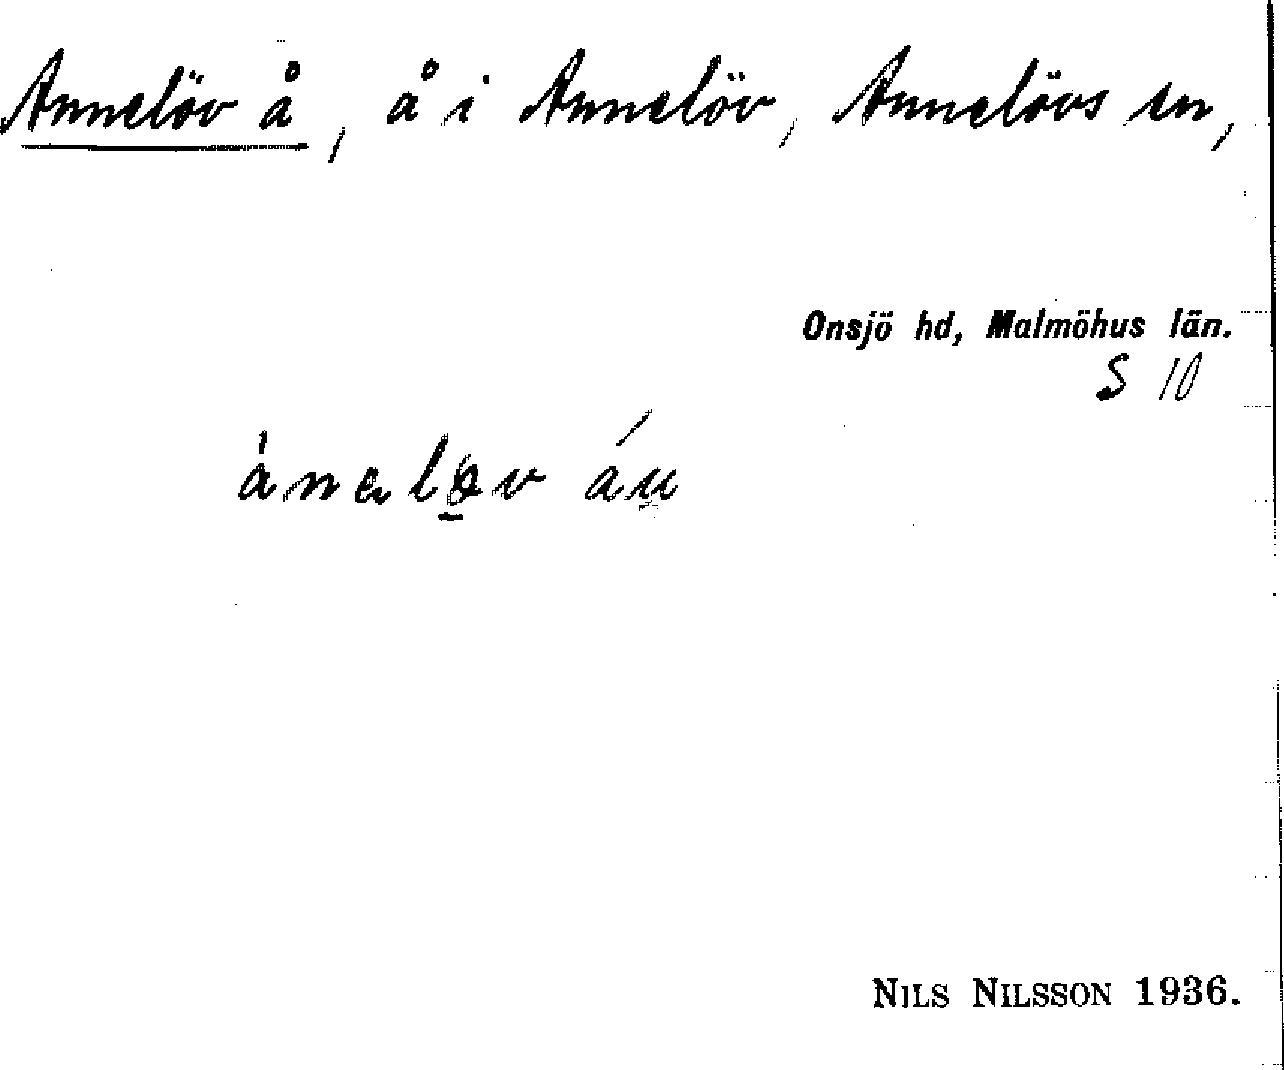 Annelöv å, å i Annelöv, Annelövs sn,
Onsjö hd, Malmöhus län.
S 10
NILS NILSSON 1936.